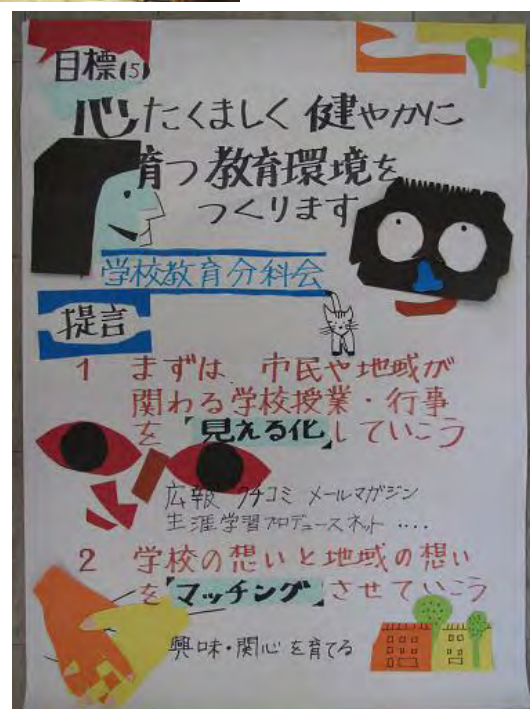 目標(5)
心たくましく 健やかに
育つ教育環境を
つくります
学校教育分科会
提言
1 まずは、市民や地域が
関わる学校授業・行事
を「見える化」していこう
広報 クチコミ メールマガジン
生涯学習プロデュースネット ‥‥
2 学校の想いと地域の想い
を「マッチング」させていこう
興味・関心を育てる